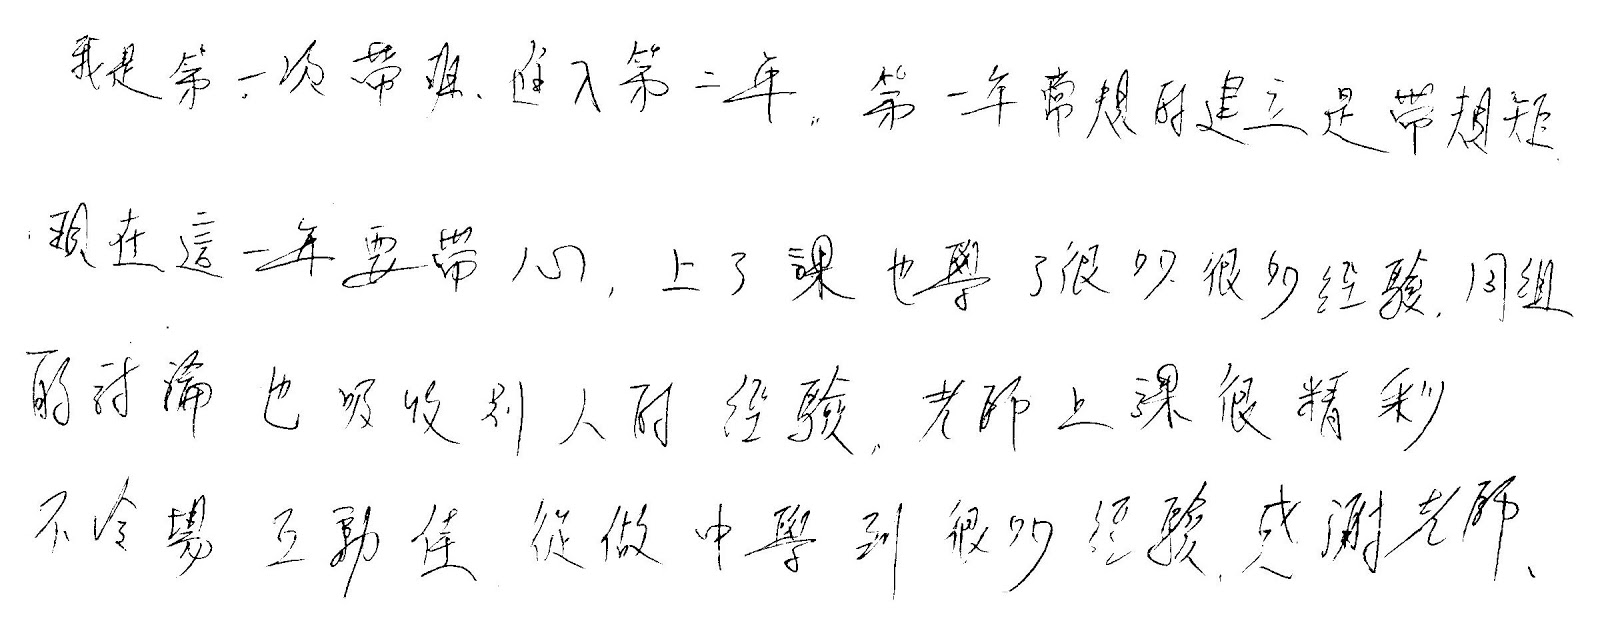 我是第一次帶班、進入第二年。第一年常規的建立是帶規矩
現在這一年要帶心，上了課也學了很多很多經驗，同組
的討論也吸收別人的經驗。老師上課很精彩
不冷場 互動佳 從做中學到很多經驗，感謝老師、